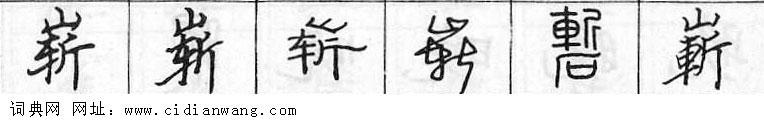 崭 崭 崭 崭 磛 嶄
词典网 网址：www.cidianwang.com